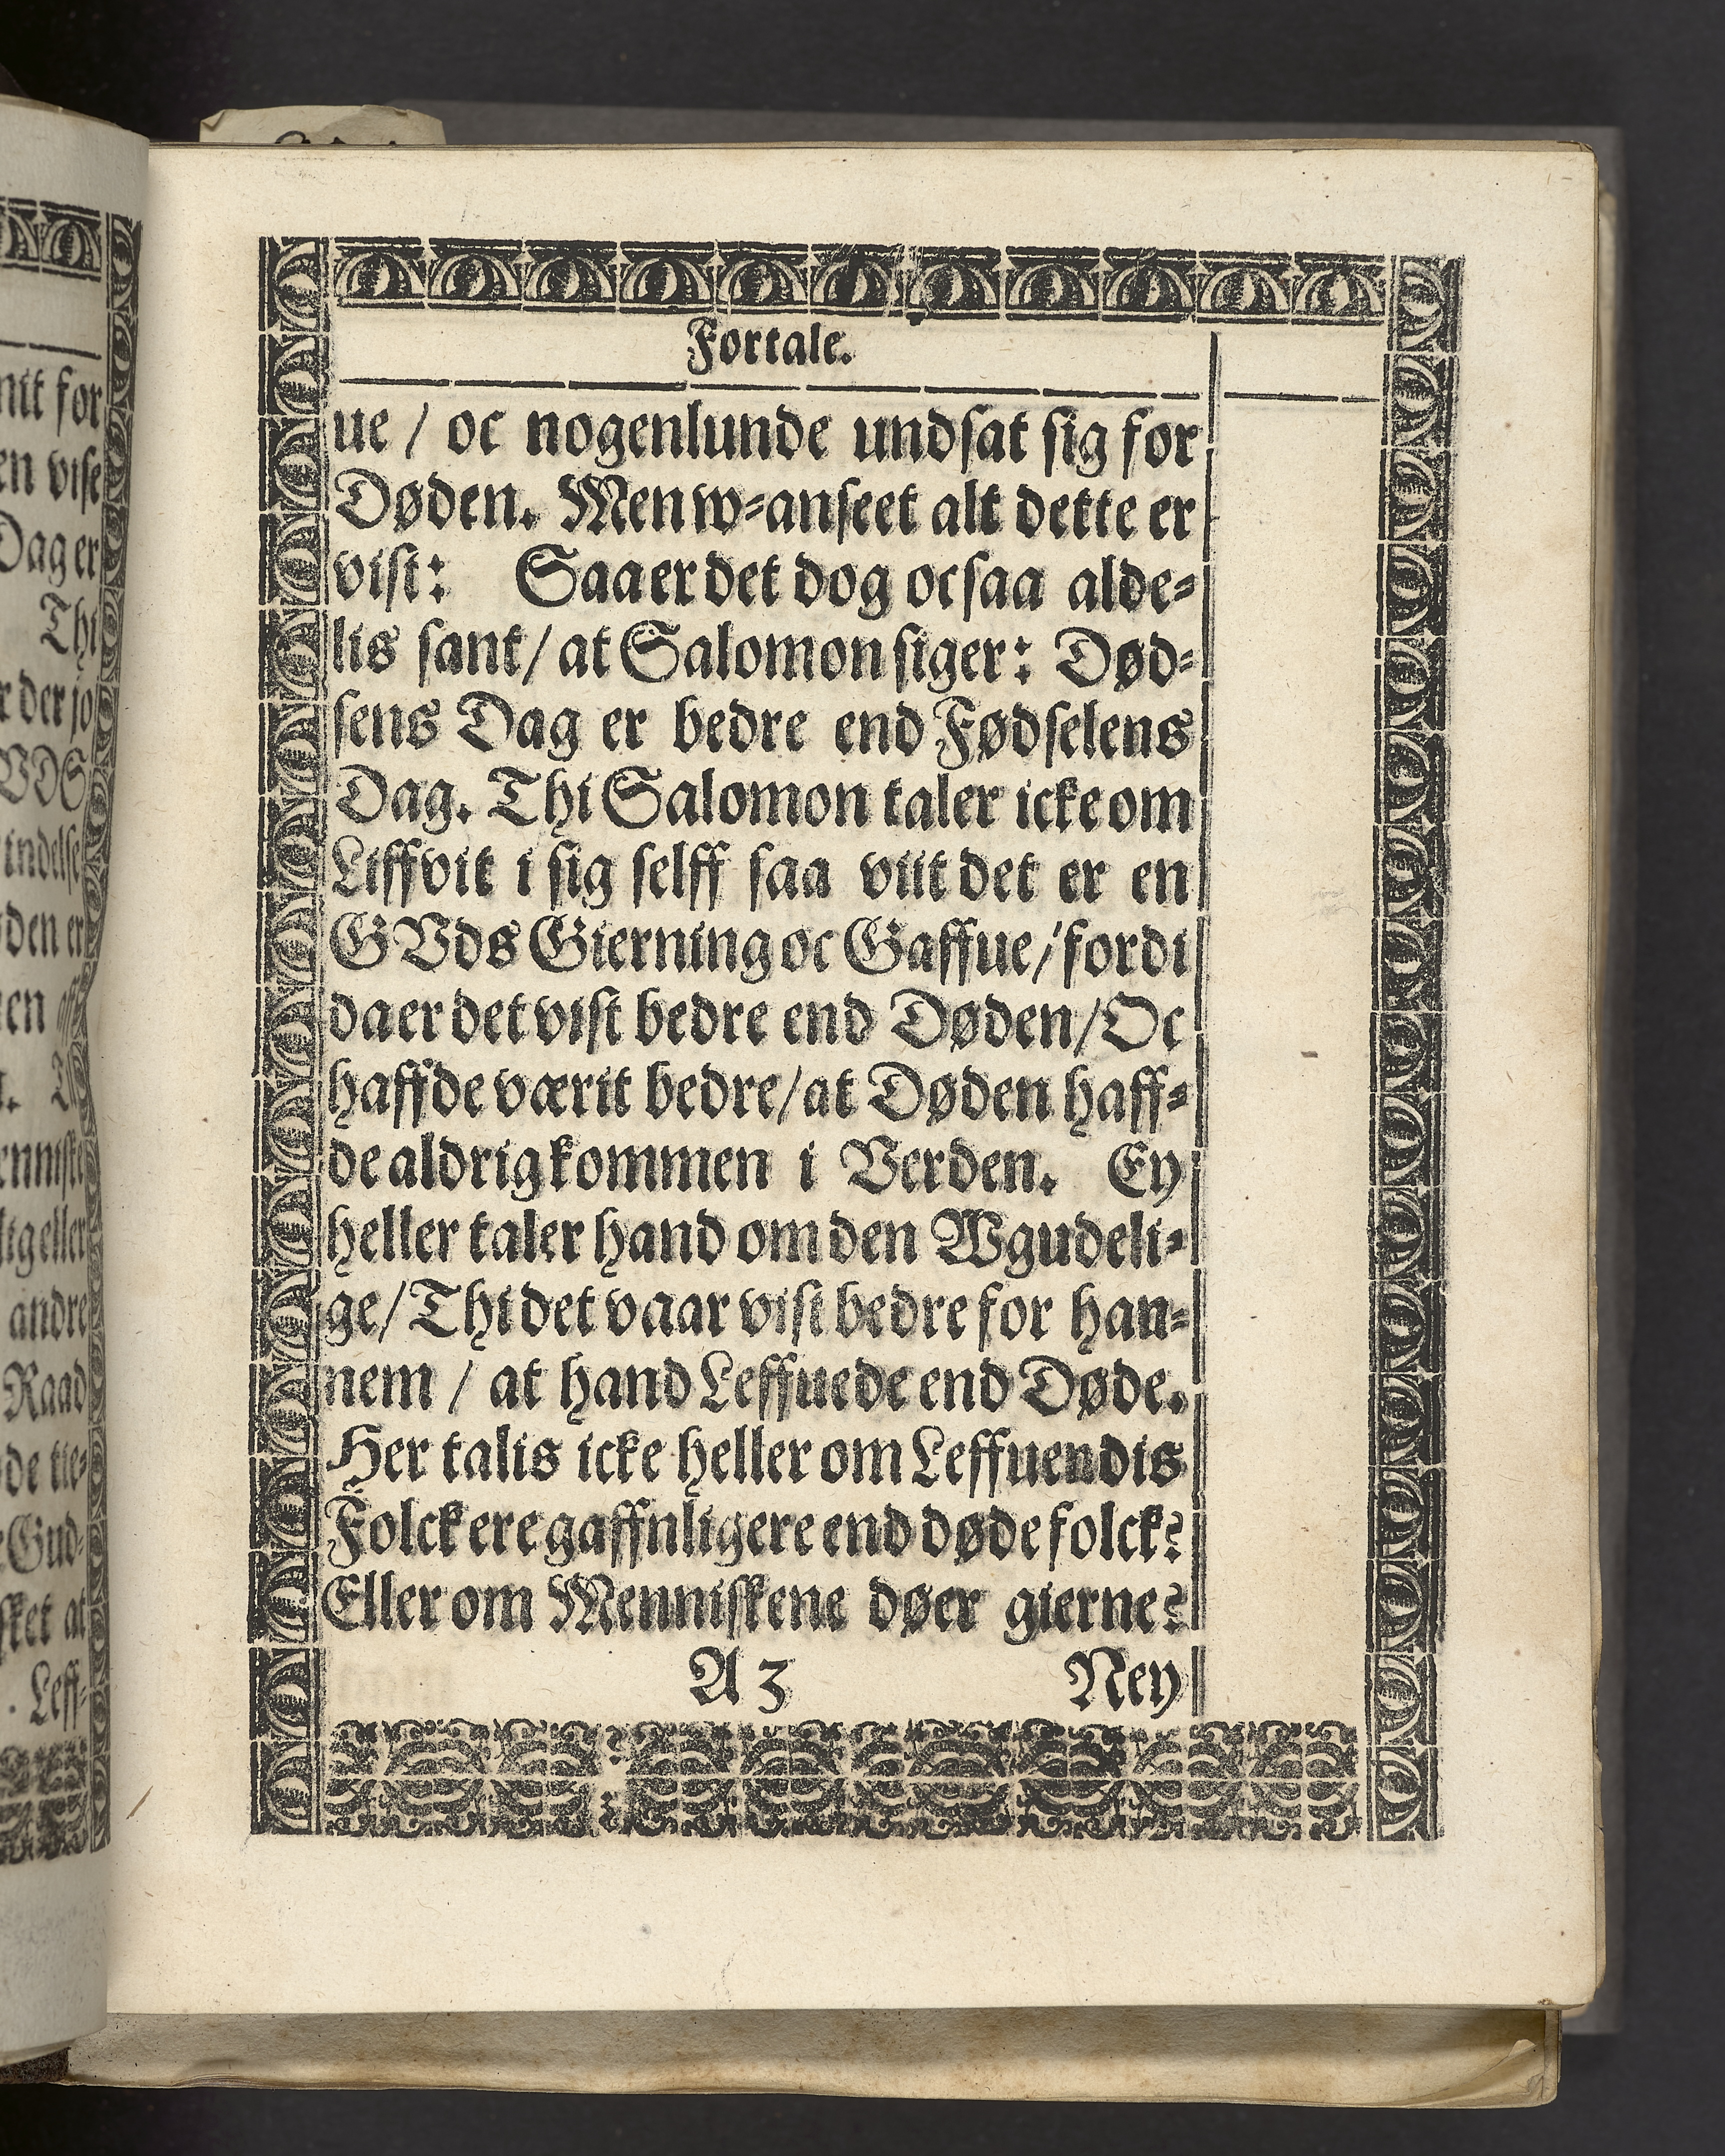 Fortale.
ue / oc nogenlunde undsat sig for
Døden. Men w-anseet alt dette er
vist: Saa er det dog ocsaa alde-
lis sant / at Salomon siger: Død-
sens Dag er bedre end Fødselens
Dag. Thi Salomon taler icke om
Liffvit i sig selff saa viit det er en
GVds Gierning oc Gaffue / fordi
da er det vist bedre end Døden / Oc
haffde værit bedre / at Døden haff-
de aldrig kommen i Verden. Ey
heller taler hand om den Wgudeli-
ge / Thi det vaar vist bedre for han-
nem / at hand Leffuede end Døde.
Her talis icke heller om Leffuendis
Folck ere gaffnligere end døde folck?
Eller om Menniskene døer gierne?
A 3 Ney
nit for
en vise
Dag er
Thi
r der jo
VDS
indelse
den er
en
enniske
lig eller
andre
Raad
de tie-
Gud-
sket at
. Leff-